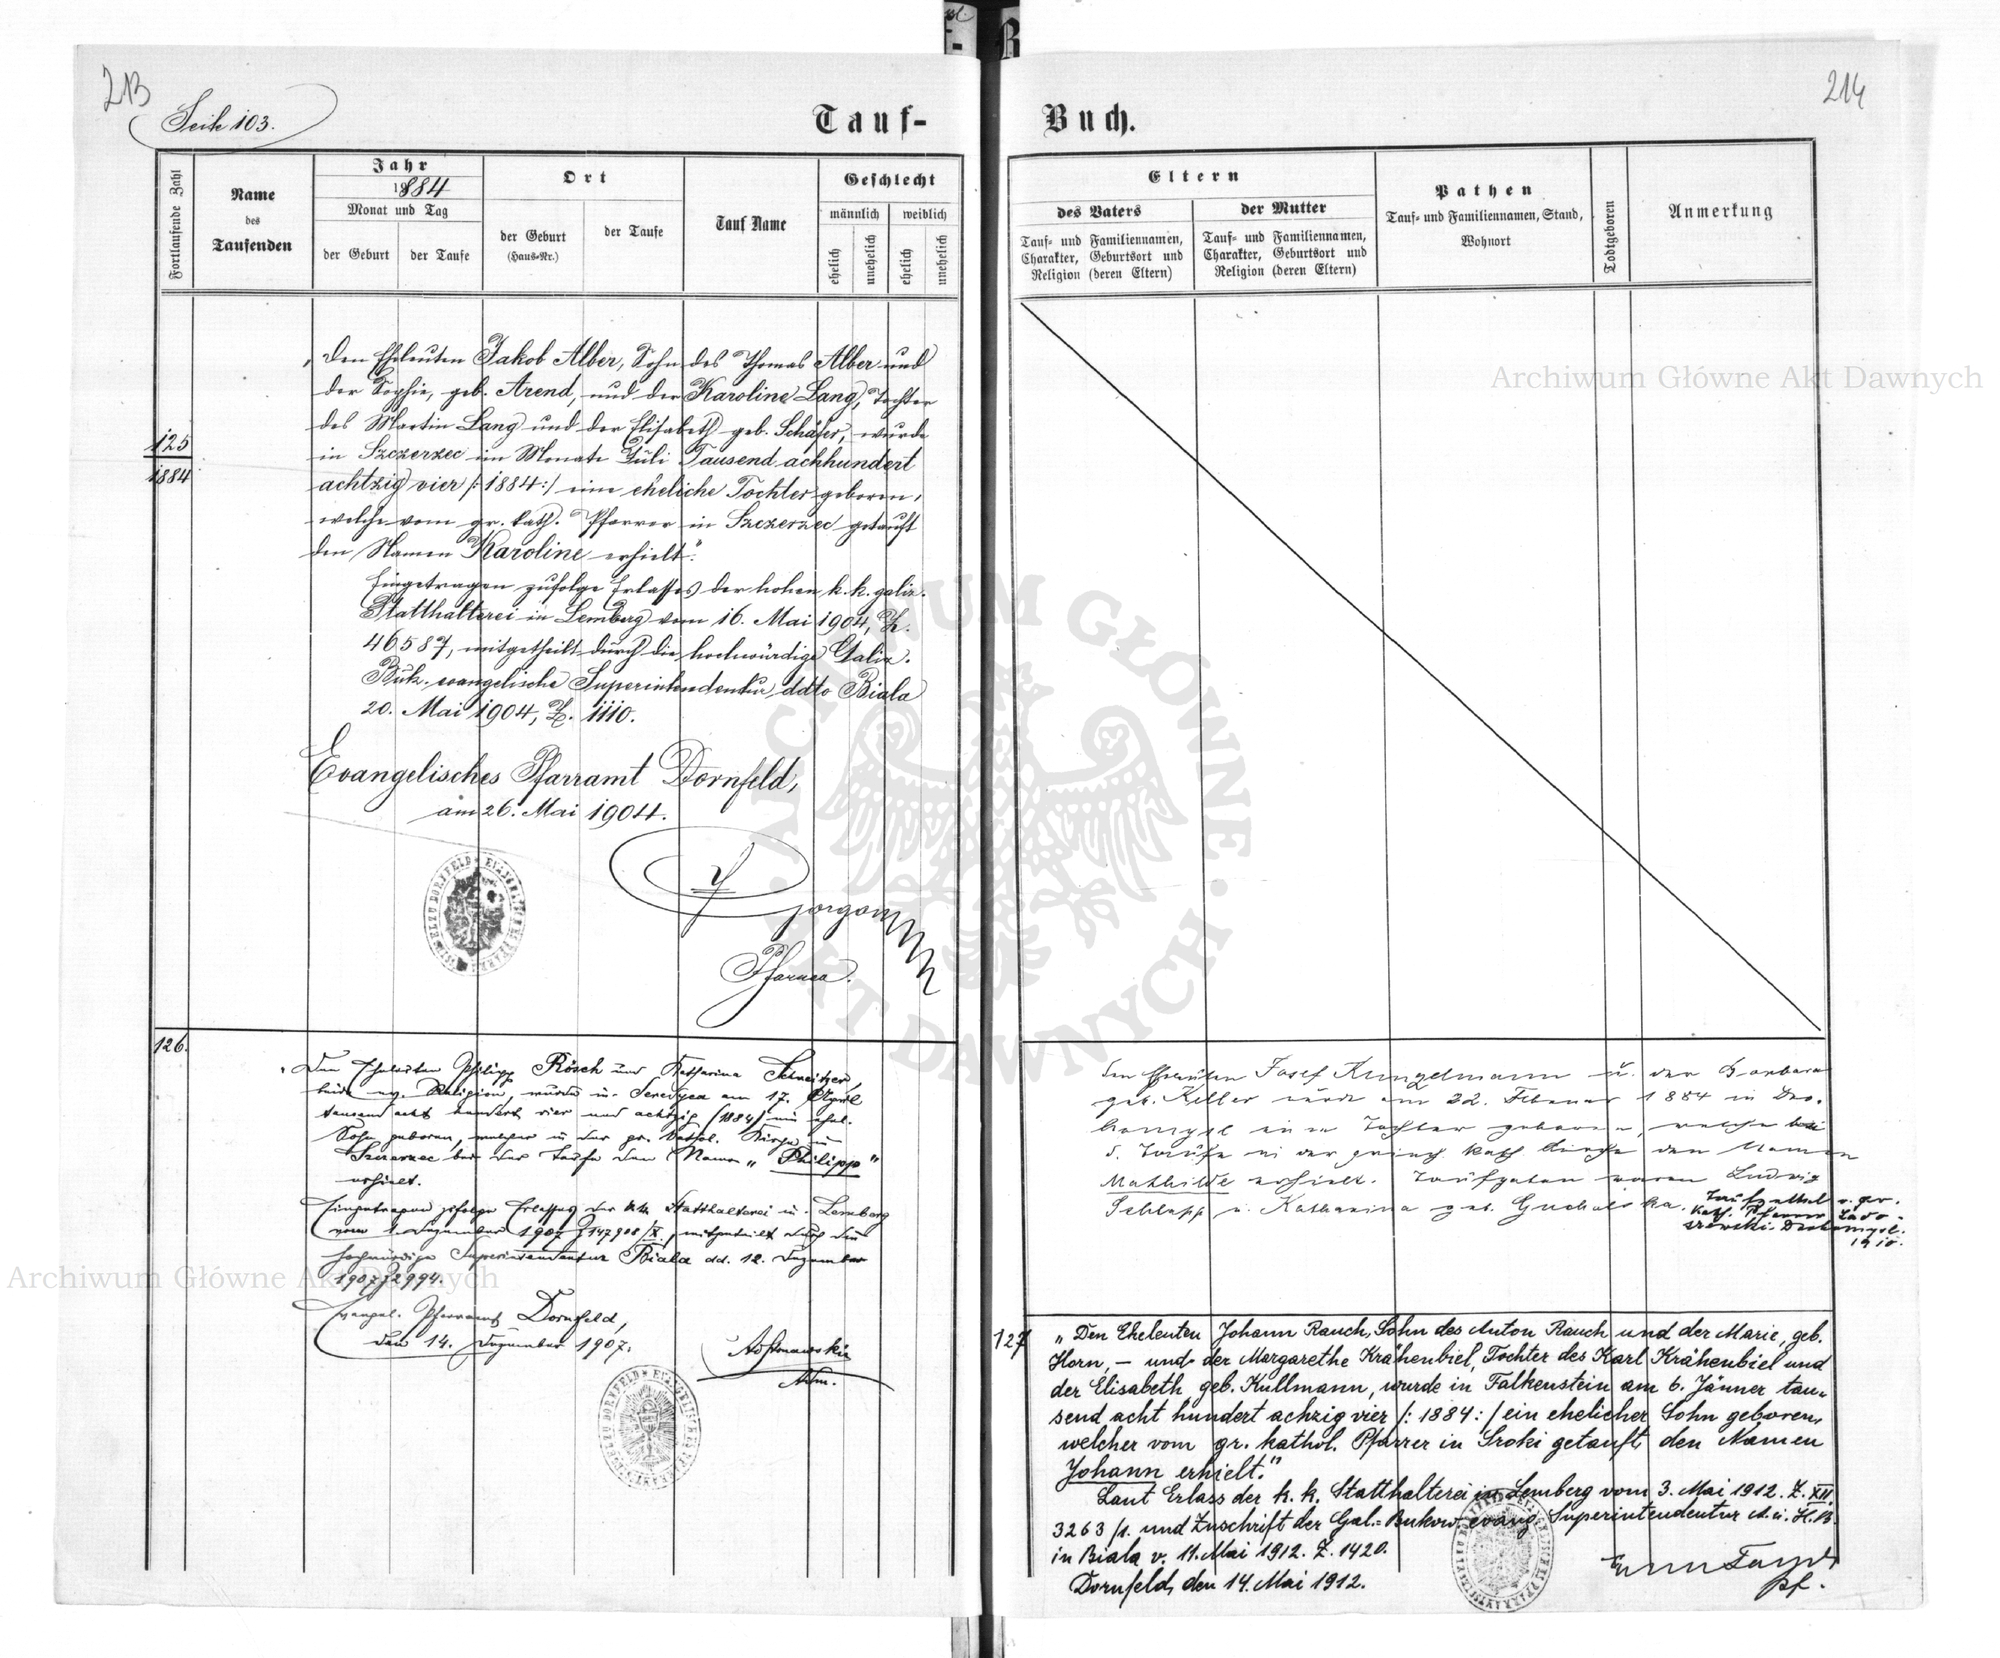 213
Seite 103.
Tauf-
Fortlaufende Zahl
Name
des
Taufenden
Jahr
1884
Monat und Tag
der Geburt
der Taufe
Ort
der Geburt
(Haus-Nr.)
der Taufe
Tauf Name
Geschlecht
männlich
weiblich
ehelich
unehelich
ehelich
unehelich
125
1884
„Den Eheleuten Jakob Alber, Sohn des Thomas Alber und
der Sophie, geb. Arend, und der Karoline Lang, Tochter
des Martin Lang und der Elisabeth geb. Schäfer, wurde
in Szczerzec im Monate Juli Tausend achhundert
achtzig vier /: 1884 :/ eine eheliche Tochter geboren,
welche vom gr. kath. Pfarrer in Szczerzec getauft
den Namen Karoline erhielt."
Eingetragen zufolge Erlasses der hohen k. k. galiz.
Statthalterei in Lemberg vom 16. Mai 1904, Z.
46587, mitgetheilt durch die hochwürdige Galiz.
Buk. evangelische Superintendentur ddto Biala
20. Mai 1904, Z. 1110.
Evangelisches Pfarramt Dornfeld,
am 26. Mai 1904.
Pfarrer.
126.
„Den Eheleuten Philipp Rösch und Katharina Schweitzer,
beide ev. Religion, wurde in Serdyca am 17. April
tausend acht hundert vier und achtzig /1884/ ein ehel.
Sohn geboren, welcher in der gr. kathol. Kirche in
Szczerzec bei der Taufe den Namen „Philipp"
erhielt.
Eingetragen zufolge Erlasses der k.k. Statthalterei in Lemberg
vom 1. Dezember 1907 Z 147908/X, mitgeteilt durch die
hochwürdige Superintendentur Biala dd. 12. Dezember
1907 Z 2994.
Evangel. Pfarramt Dornfeld,
den 14. Dezember 1907.
Adm.
214
Buch.
Eltern
des Vaters
Tauf- und Familiennamen,
Charakter, Geburtsort und
Religion (deren Eltern)
der Mutter
Tauf- und Familiennamen,
Charakter, Geburtsort und
Religion (deren Eltern)
Pathen
Tauf- und Familiennamen, Stand,
Wohnort
Todtgeboren
Anmerkung
Den Eheleuten Josef Kungelmann u. der Barbara
geb. Keller wurde am 22. Februar 1884 in Dro-
homysl eine Tochter geboren, welche bei
d. Taufe in der griech. kath. Kirche den Namen
Mathilde erhielt. Taufpaten waren Ludwig
Schlapp u. Katharina geb.
Taufzettel v. gr.
kath. Pfarrer
Drohomysl.
1910.
127
„Den Eheleuten Johann Rauch, Sohn des Anton Rauch und der Marie, geb.
Horn, – und der Margarethe Krähenbiel, Tochter des Karl Krähenbiel und
der Elisabeth geb. Kullmann, wurde in Falkenstein am 6. Jänner tau-
send acht hundert achzig vier /: 1884 :/ ein ehelicher Sohn geboren,
welcher vom gr. kathol. Pfarrer in Sroki getauft den Namen
Johann erhielt."
Laut Erlass der k. k. Statthalterei in Lemberg vom 3. Mai 1912. Z. XII.
3263/1. und Zuschrift der Gal.-Bukow. evang. Superintendentur A. u. H. B.
in Biala v. 11. Mai 1912. Z. 1420.
Dornfeld, den 14. Mai 1912.
Pf.
Archiwum Główne Akt Dawnych
Archiwum Główne Akt Dawnych
ARCHIWUM GŁÓWNE AKT DAWNYCH